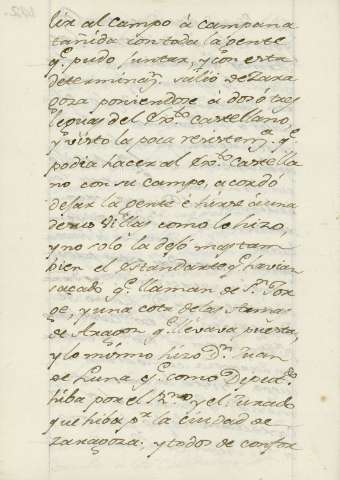 lir al campo à campana
tañida con toda la gente
q.e pudo juntar, y con esta
determinaz.n salió de Zara
goza poniendose à dos ó tres
leguas del Ex.to Castellano
y visto la poca resistenz.a q.e
podia hacer al Ex.to Castella
no con su campo, acordó
dejar la gente é hirse á una
de sus Villas como lo hizo,
y no solo la dejó mas tam
bien el estandarte q.e havian
sacado q.e llaman de S.n Jor
ge, y una cota de las Armas
de Aragon q.e llevava puesta,
y lo mismo hizo D.n Juan
de Luna q.e como Diputado
hiba por el Rno y el Jurado
que hiba p.r la ciudad de
Zaragoza. y todos de confor